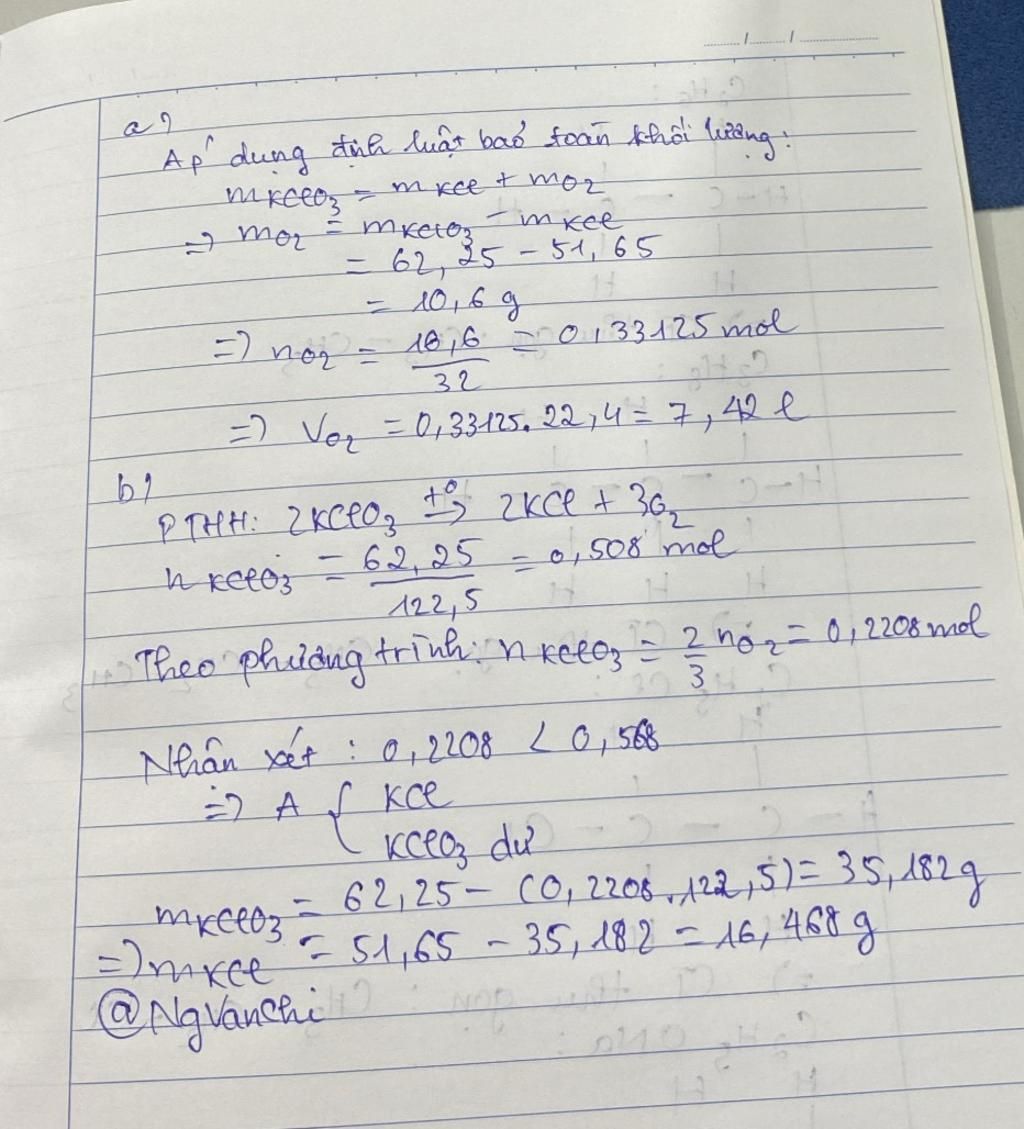 a)
Áp dụng định luật bảo toàn khối lượng:
mKClO3 = mKCl + mO2
=> mO2 = mKClO3 - mKCl
= 62,25 - 51,65
= 10,6 g
=> nO2 = 10,6/32 = 0,33125 mol
=> VO2 = 0,33125.22,4 = 7,42 l
b)
PTHH: 2KClO3 t°→ 2KCl + 3O2
nKClO3 = 62,25/122,5 = 0,508 mol
Theo phương trình: nKClO3 = 2/3 nO2 = 0,2208 mol
Nhân xét: 0,2208 < 0,508
=> A { KCl
KClO3 dư
mKClO3 = 62,25 - (0,2208.122,5) = 35,182 g
=> mKCl = 51,65 - 35,182 = 16,468 g
@NgVanChi